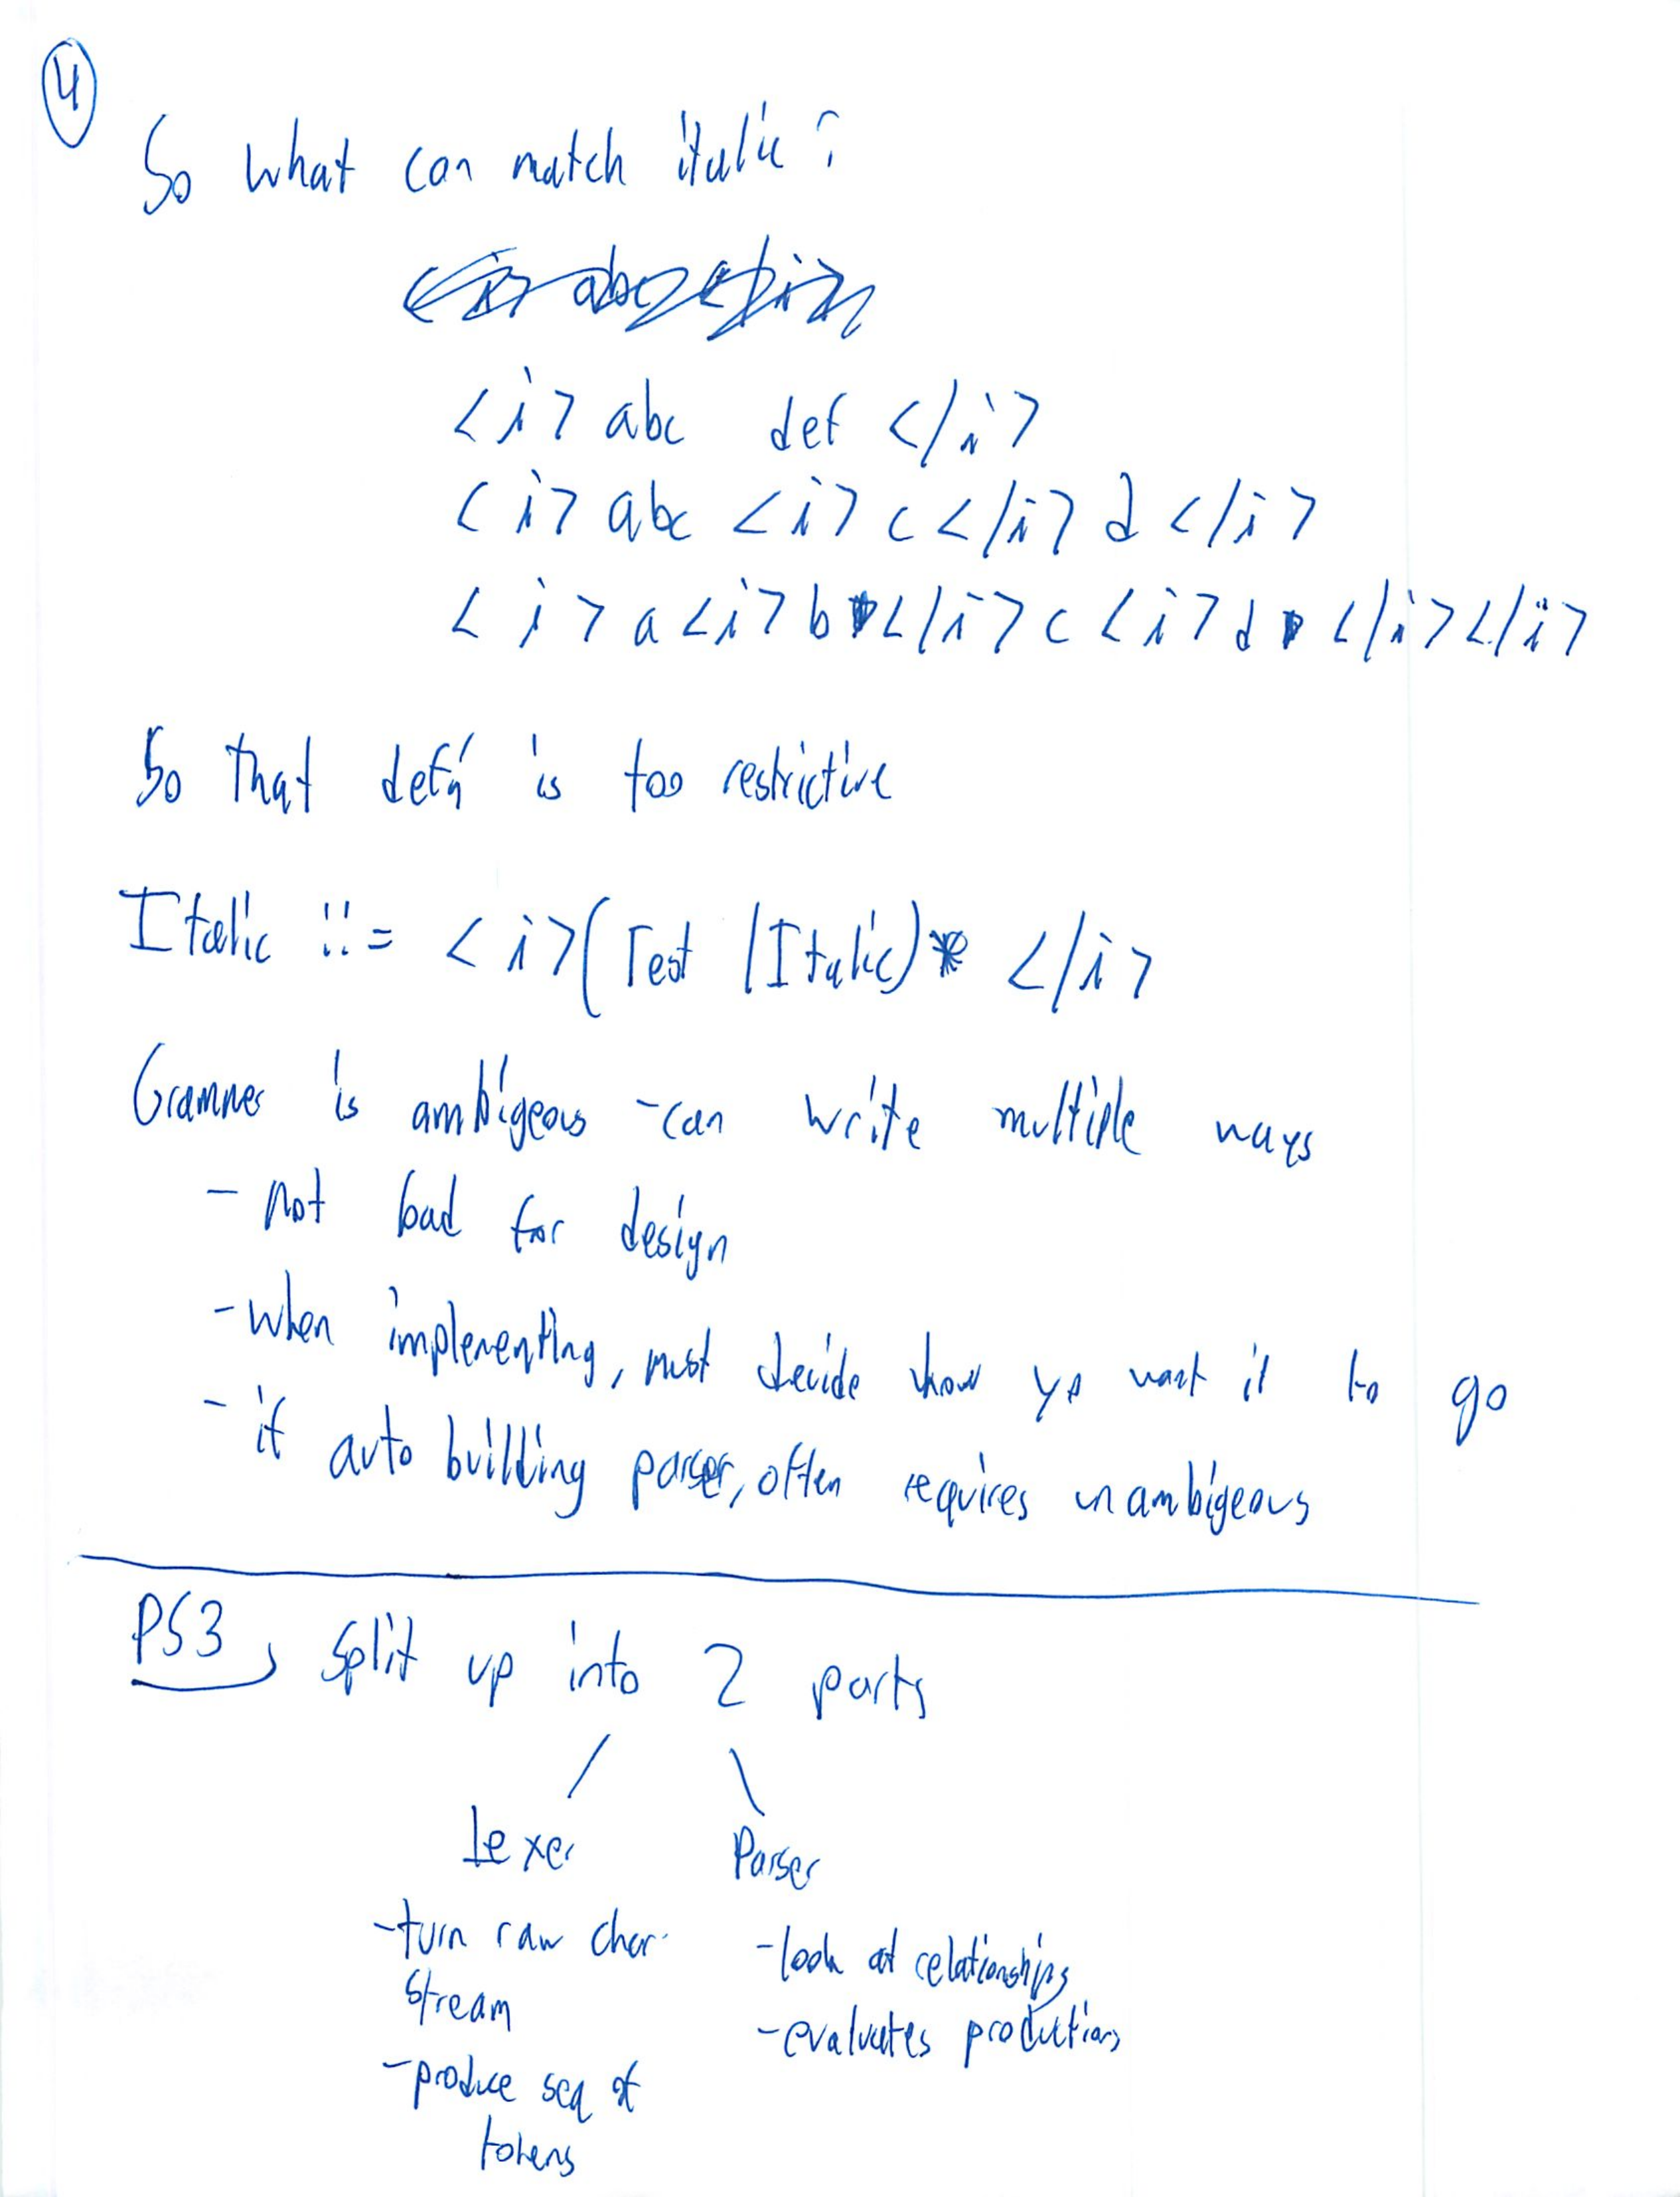 4
So what can match italic?
<i> abc def </i>
<i> abc <i> c </i> d </i>
<i> a <i> b </i> c <i> d </i></i>
So that def'n is too restrictive
Italic ::= <i>(Text | Italic)* </i>
Grammer is ambigeous - can write multiple ways
- not bad for design
- when implementing, must decide how you want it to go
- if auto building parser, often requires unambigeous
PS3, split up into 2 parts
Lexer
- turn raw char.
stream
- produce seq of
tokens
Parser
- look at relationships
- evaluates productions